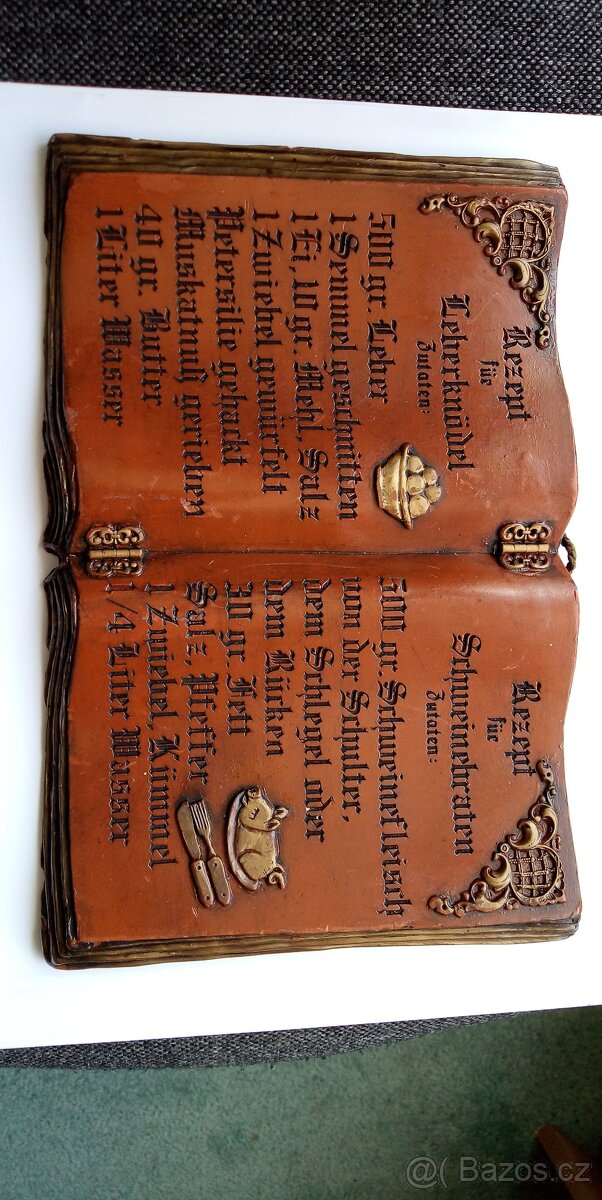 Rezept
für
Leberknödel
Zutaten:
500 gr. Leber
1 Semmel geschnitten
1 Ei, 10 gr. Mehl, Salz
1 Zwiebel gewürfelt
Petersilie gehackt
Muskatnuß gerieben
40 gr. Butter
1 Liter Wasser
Rezept
für
Schweinebraten
Zutaten:
500 gr. Schweinefleisch
von der Schulter,
dem Schlegel oder
dem Rücken
30 gr. Fett
Salz, Pfeffer
1 Zwiebel, Kümmel
1/4 Liter Wasser
@( Bazos.cz